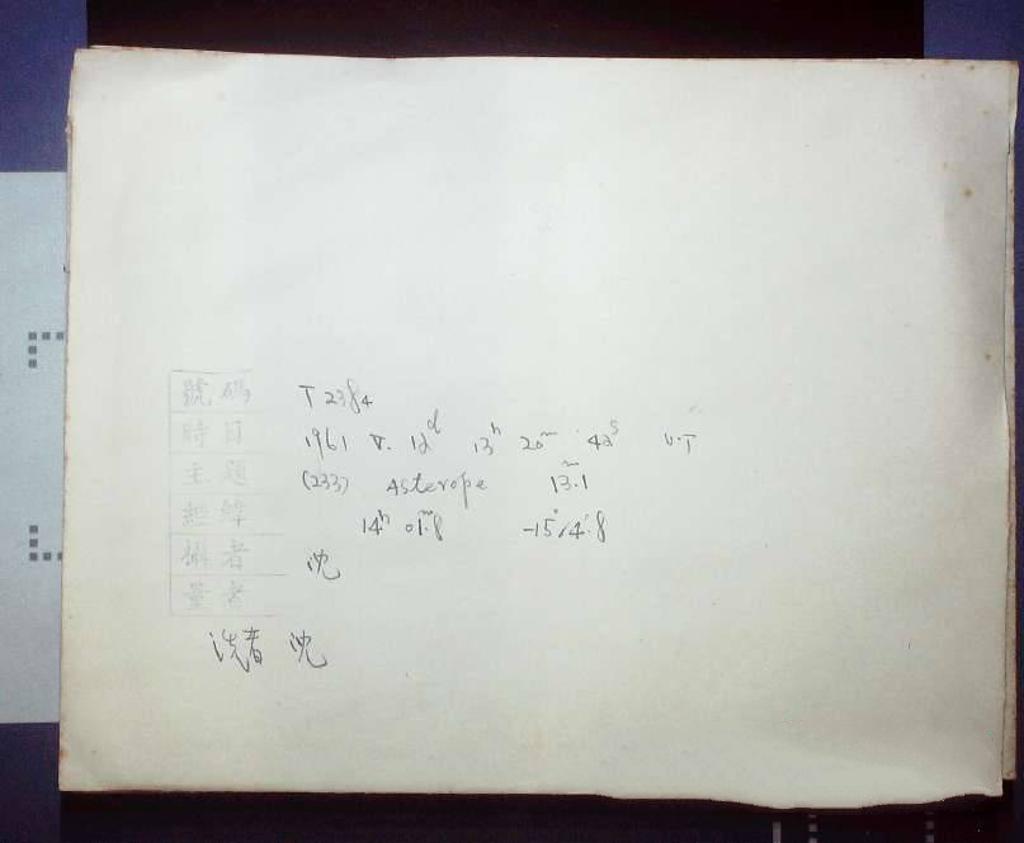 號碼 T 2384
時日 1961 V. 12ᵈ 13ʰ 20ᵐ 42ˢ U.T
主題 (233) Asterope 13ᵐ.1
經緯 14ʰ 01ᵐ.8 -15°14'.8
攝者 沈
量者
洗者 沈